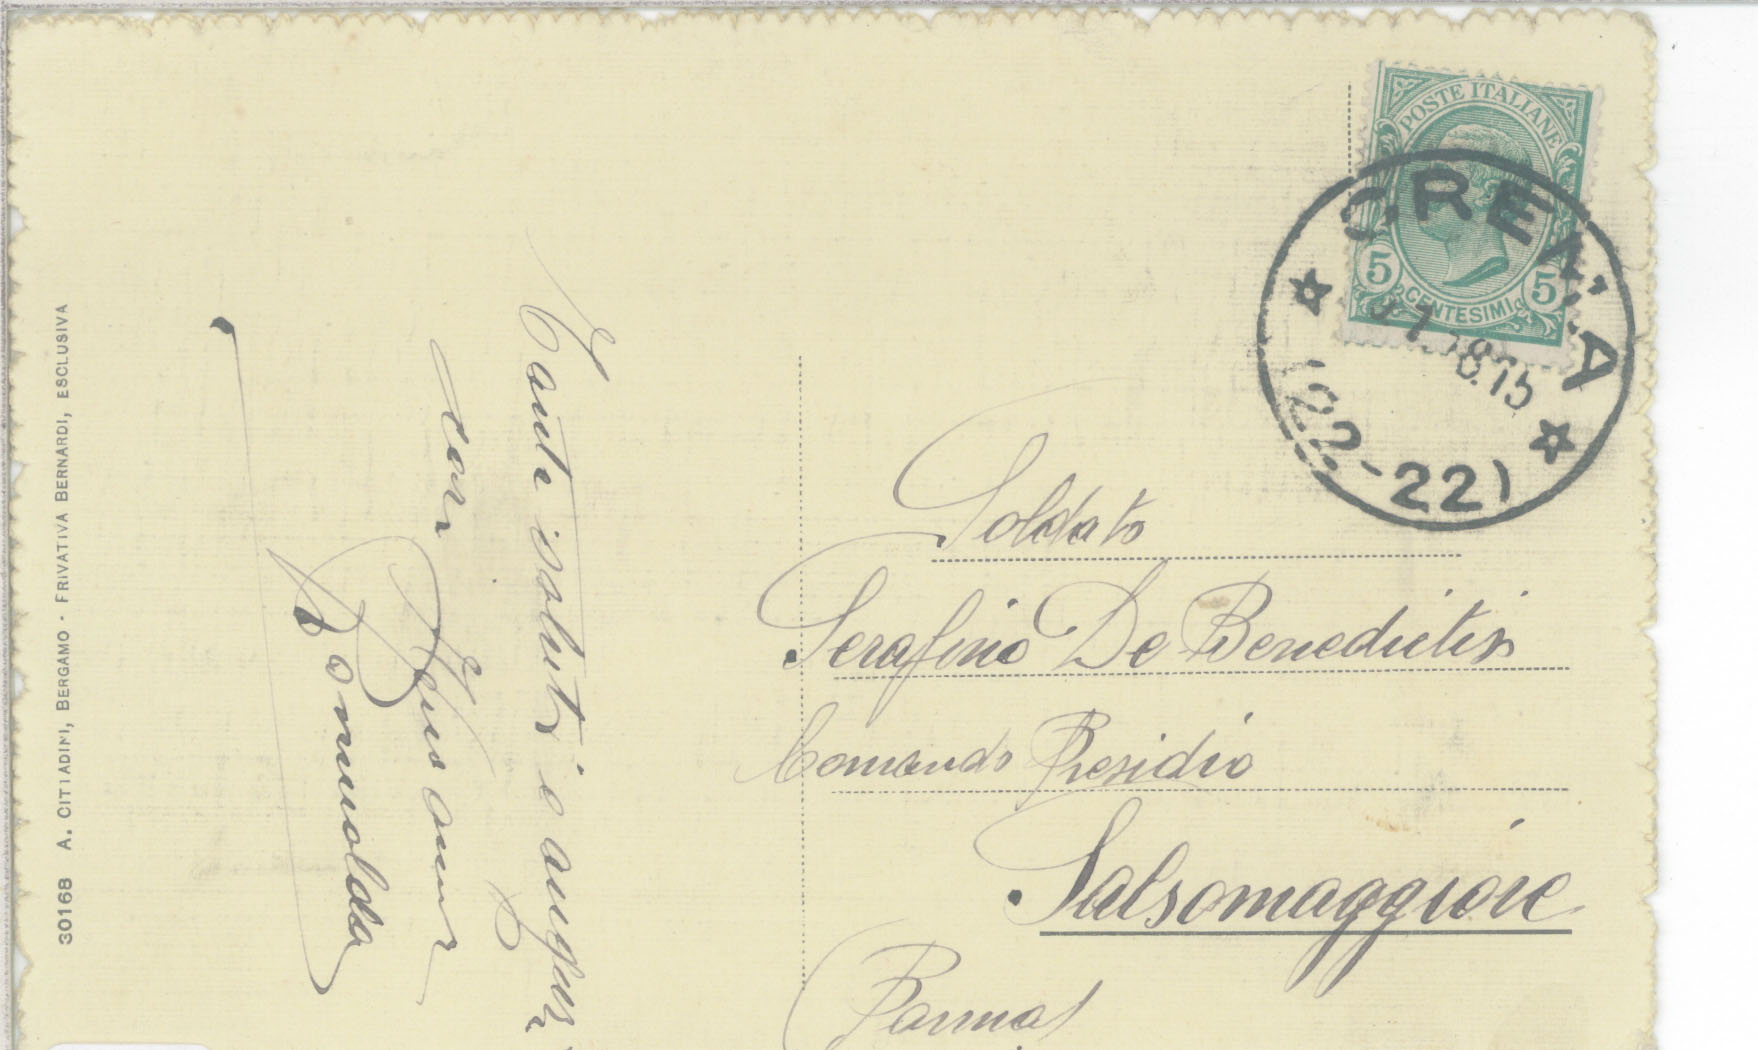 POSTE ITALIANE
5 5
CENTESIMI
CREMA
8.15
(22-22)
Soldato
Serafino De Benedictis
Comando Presidio
Salsomaggiore
Parma
Tanti saluti e auguri
cari
Romualdo
30168 A. CITTADINI, BERGAMO - PRIVATIVA BERNARDI, ESCLUSIVA